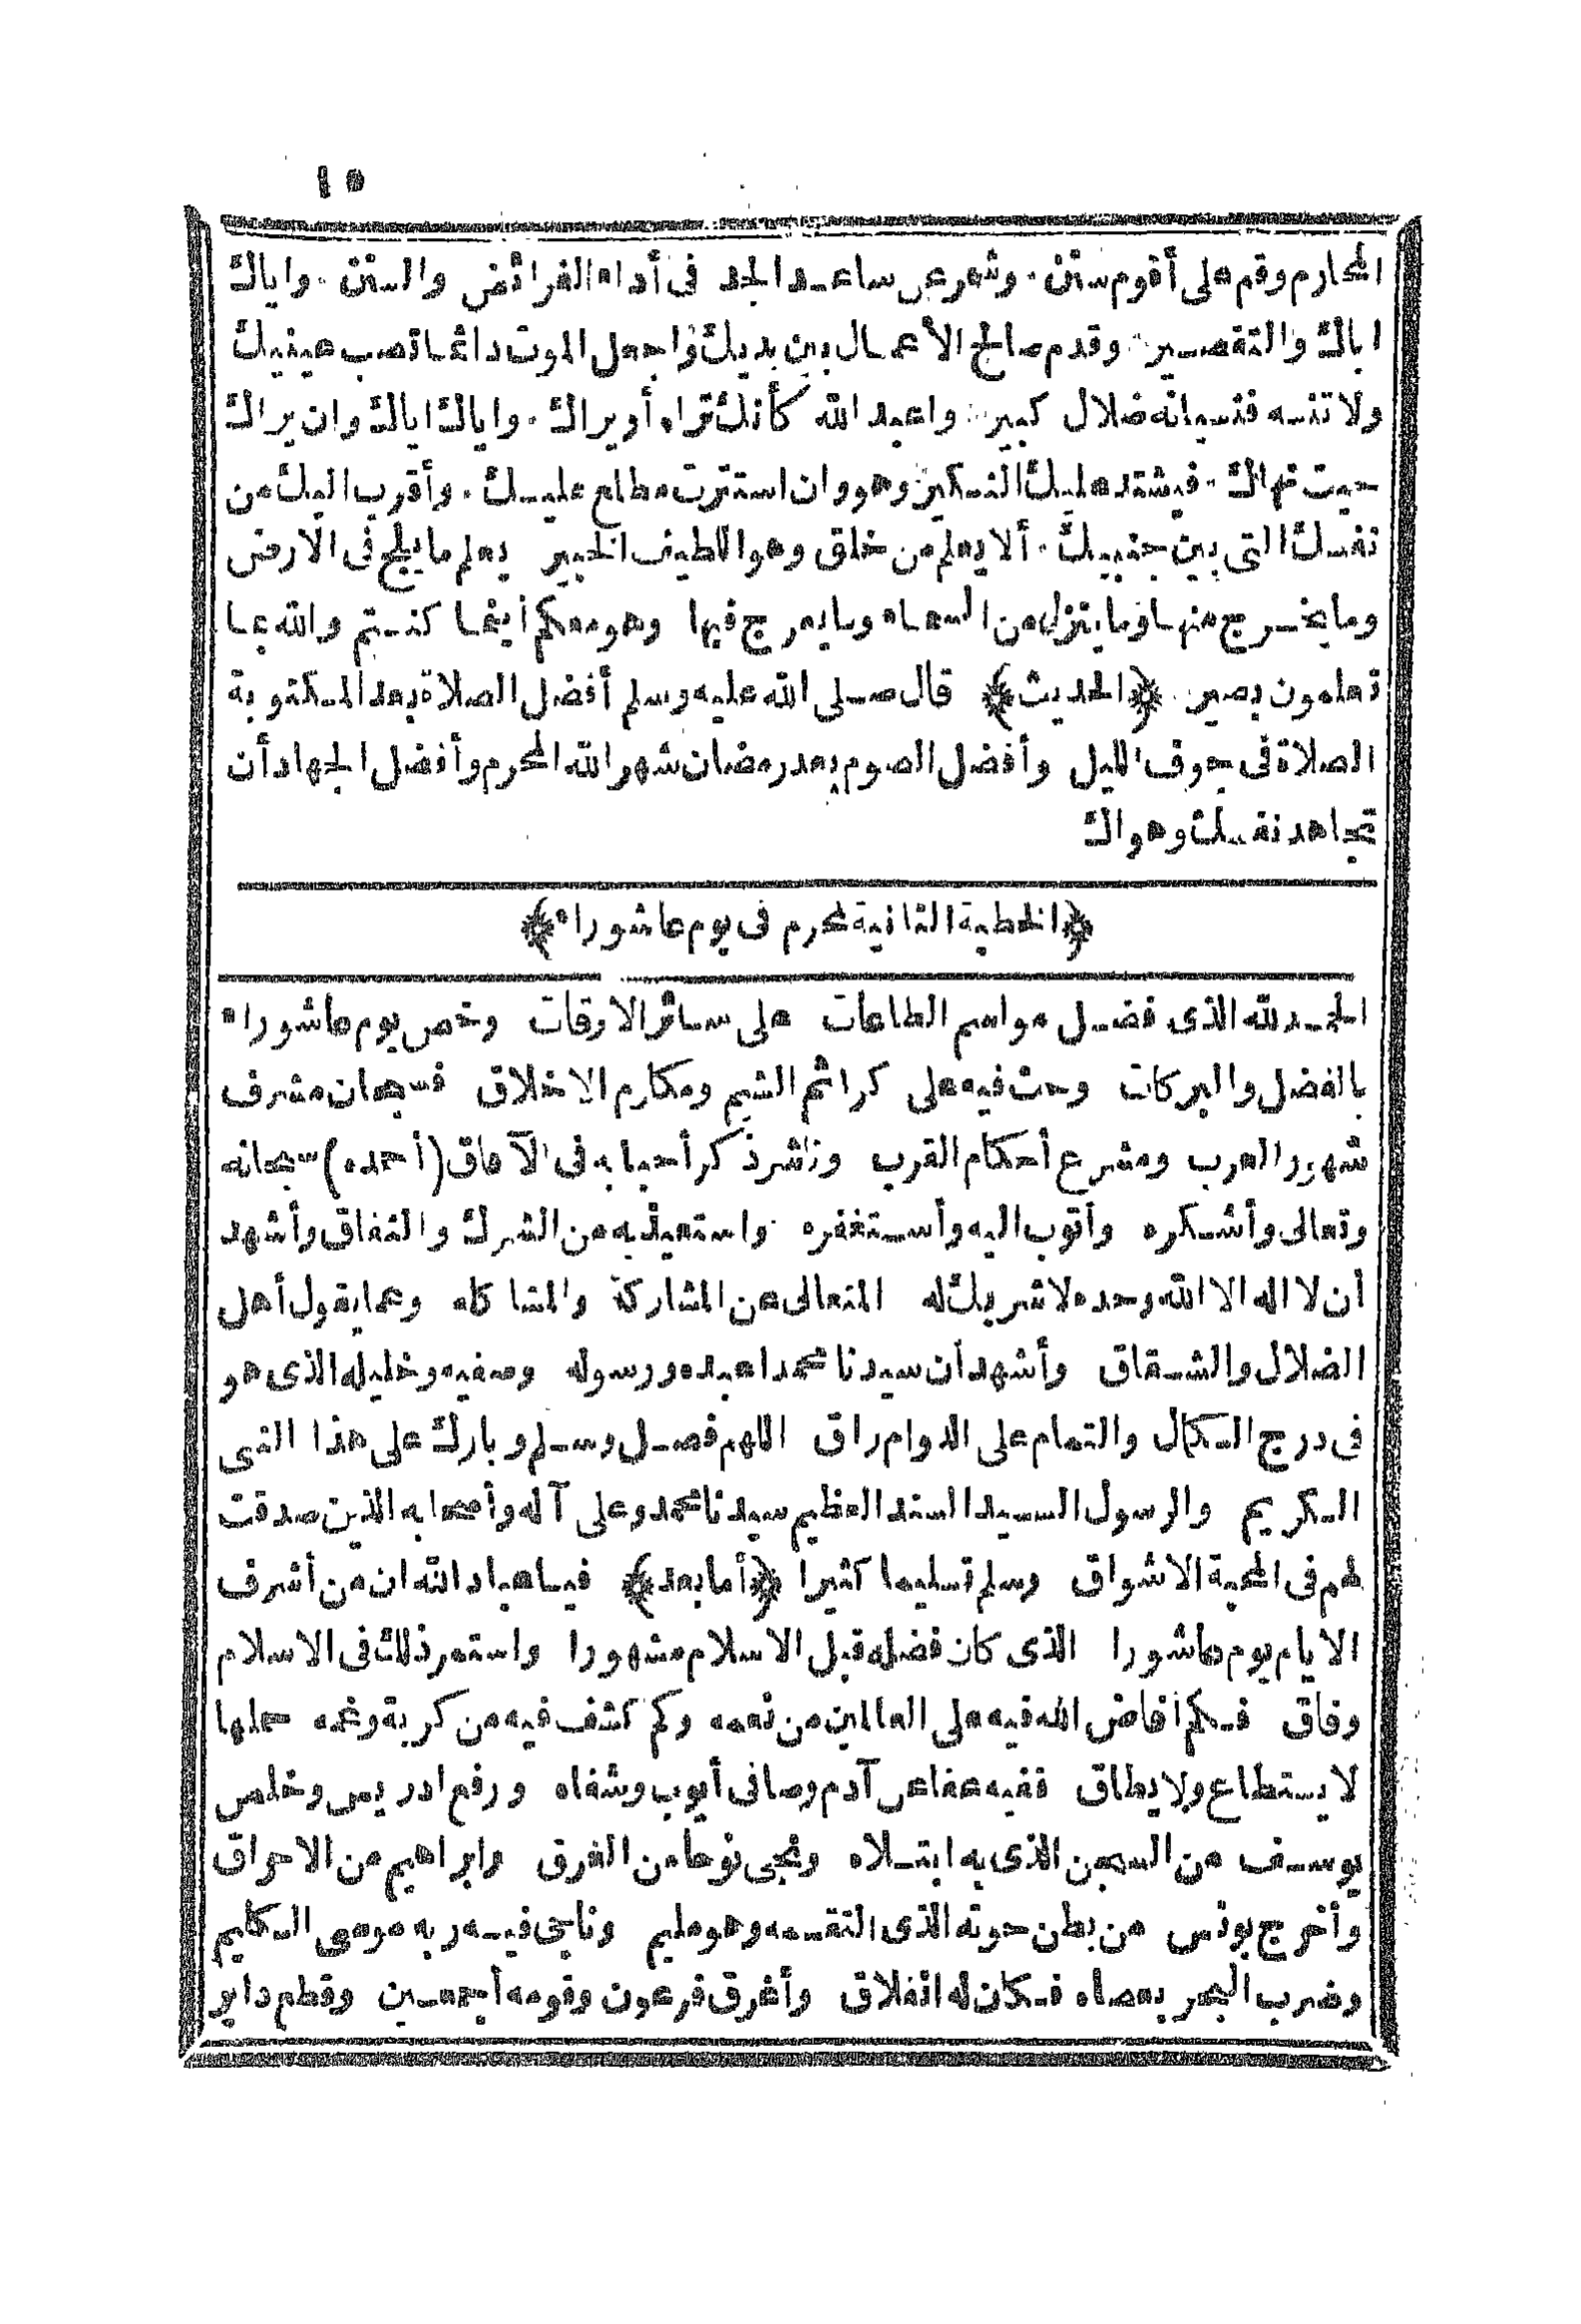 ١٥
المحارم وقم على أقوم سنن . وشمر عن ساعد الجد فى أداء الفرائض والسنن . واياك
اياك والتقصير . وقدم صالح الأعمال بين يديك واجعل الموت دائما نصب عينيك
ولا تنسه فنسيانه ضلال كبير . واعبد الله كأنك تراه أو يراك . واياك اياك وان يراك
حيث نهاك . فيشتد عليك النكير وهو وان استترت مطلع عليك . وأقرب اليك من
نفسك التى بين جنبيك . ألا يعلم من خلق وهو اللطيف الخبير يعلم ما يلج فى الارض
وما يخرج منها وما ينزل من السماء وما يعرج فيها وهو معكم أينما كنتم والله بما
تعملون بصير . ﴿الحديث﴾ قال صلى الله عليه وسلم أفضل الصلاة بعد المكتوبة
الصلاة فى جوف الليل وأفضل الصوم بعد رمضان شهر الله المحرم وأفضل الجهاد أن
تجاهد نفسك وهواك
﴿الخطبة الثانية لمحرم فى يوم عاشوراء﴾
الحمد لله الذى فضل مواسم الطاعات على سائر الاوقات وخص يوم عاشوراء
بالفضل والبركات وحث فيه على كرائم الشيم ومكارم الاخلاق فسبحان مشرف
شهور العرب ومشرع أحكام القرب وناشر ذكر أحبابه فى الآفاق (أحمده) سبحانه
وتعالى وأشكره وأتوب اليه وأستغفره واستعيذ به من الشرك والنفاق وأشهد
أن لا اله الا الله وحده لا شريك له المتعالى عن المشاركة والمشاكله وعما يقول أهل
الضلال والشقاق وأشهد أن سيدنا محمدا عبده ورسوله وصفيه وخليله الذى هو
فى درج الكمال والتمام على الدوام راق اللهم فصل وسلم وبارك على هذا النبى
الكريم والرسول السيد السند العظيم سيدنا محمد وعلى آله وأصحابه الذين صدقت
لهم فى المحبة الاشواق وسلم تسليما كثيرا ﴿أما بعد﴾ فيا عباد الله ان من أشرف
الايام يوم عاشورا الذى كان فضله قبل الاسلام مشهورا واستمر ذلك فى الاسلام
وفاق فكم أفاض الله فيه على العالمين من نعمه وكم كشف فيه من كربة وغمه حملها
لا يستطاع ولا يطاق ففيه عفا عن آدم وصافى أيوب وشفاه ورفع ادريس وخلص
يوسف من السجن الذى به ابتلاه ونجى نوحا من الغرق وابراهيم من الاحراق
وأخرج يونس من بطن حوته الذى التقمه وهو مليم وناجى فيه ربه موسى الكليم
وضرب البحر بعصاه فكان له انفلاق وأغرق فرعون وقومه أجمعين وقطع دابر